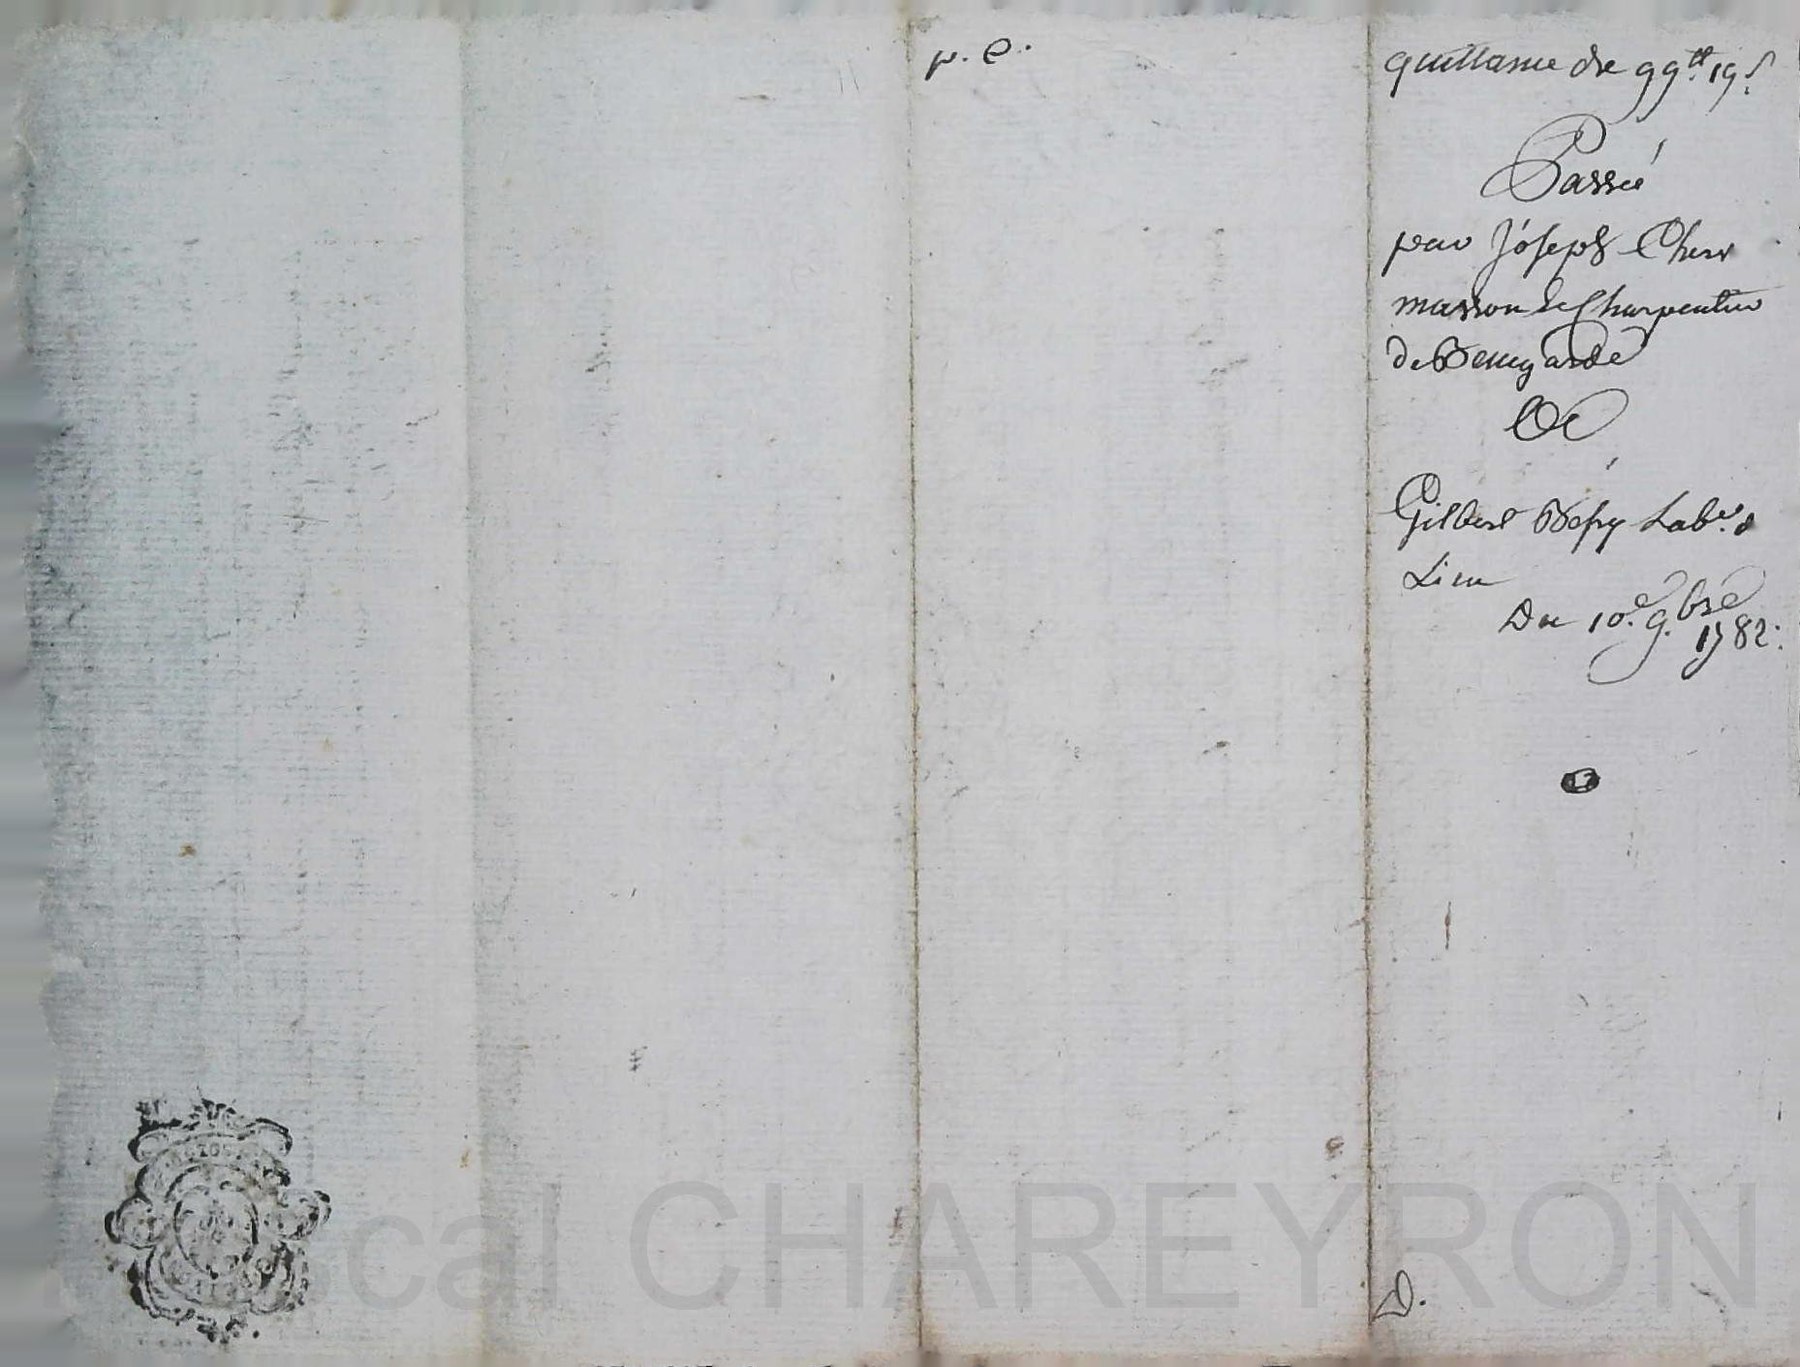 p. e.
quittance de 99 tt 19 s
Passée
par Joseph Cher
masson & Charpentier
de Beauregarde
A
Gilbert Bessy Labr. d
Lieu
Du 10e. 9.bre
1782.
D.
Pascal CHAREYRON